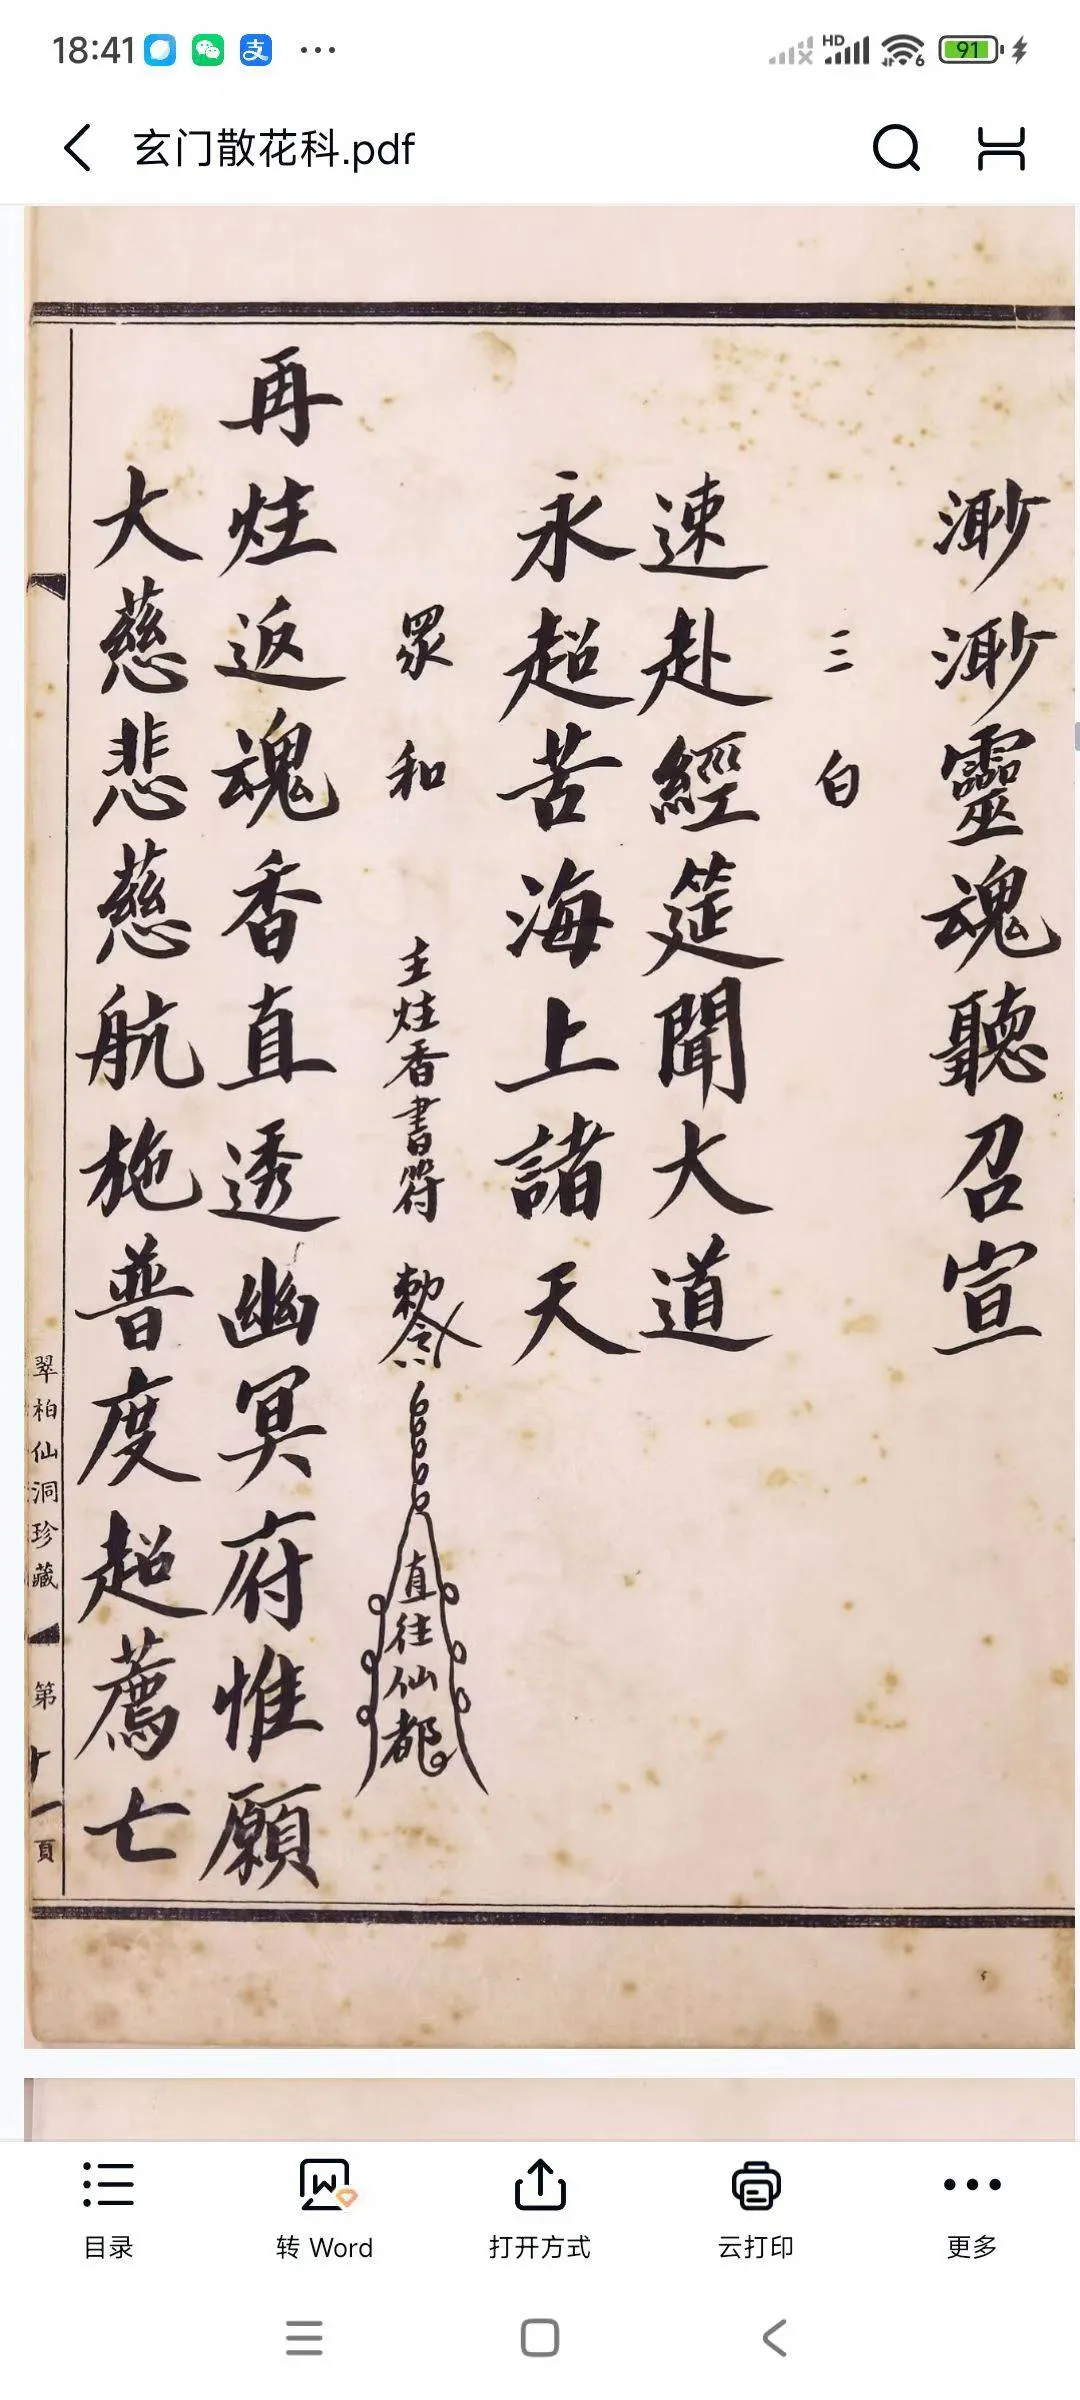 18:41
HD
6
91
玄门散花科.pdf
渺渺靈魂聽召宣
三白
速赴經筵聞大道
永超苦海上諸天
眾和 主炷香書符 勅令 直往仙都
再炷返魂香直透幽冥府惟願
大慈悲慈航施普度超薦亡
翠柏仙洞珍藏
第十一頁
目录
转 Word
打开方式
云打印
更多